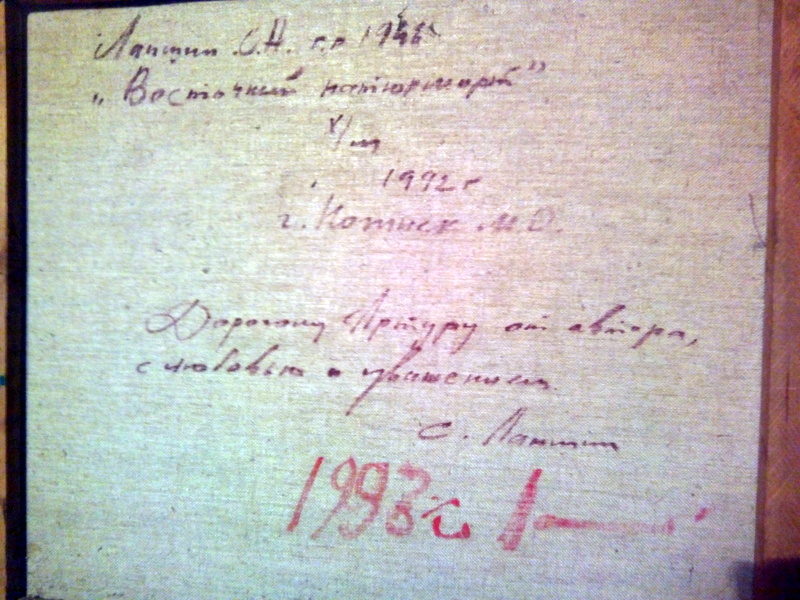 Лапшин С.Н. г.р 1948г
„Восточный натюрморт"
х/м
1992 г
г. М.О.
Дорогому Артуру от автора,
с любовью и уважением.
С. Лапшин
1993г.